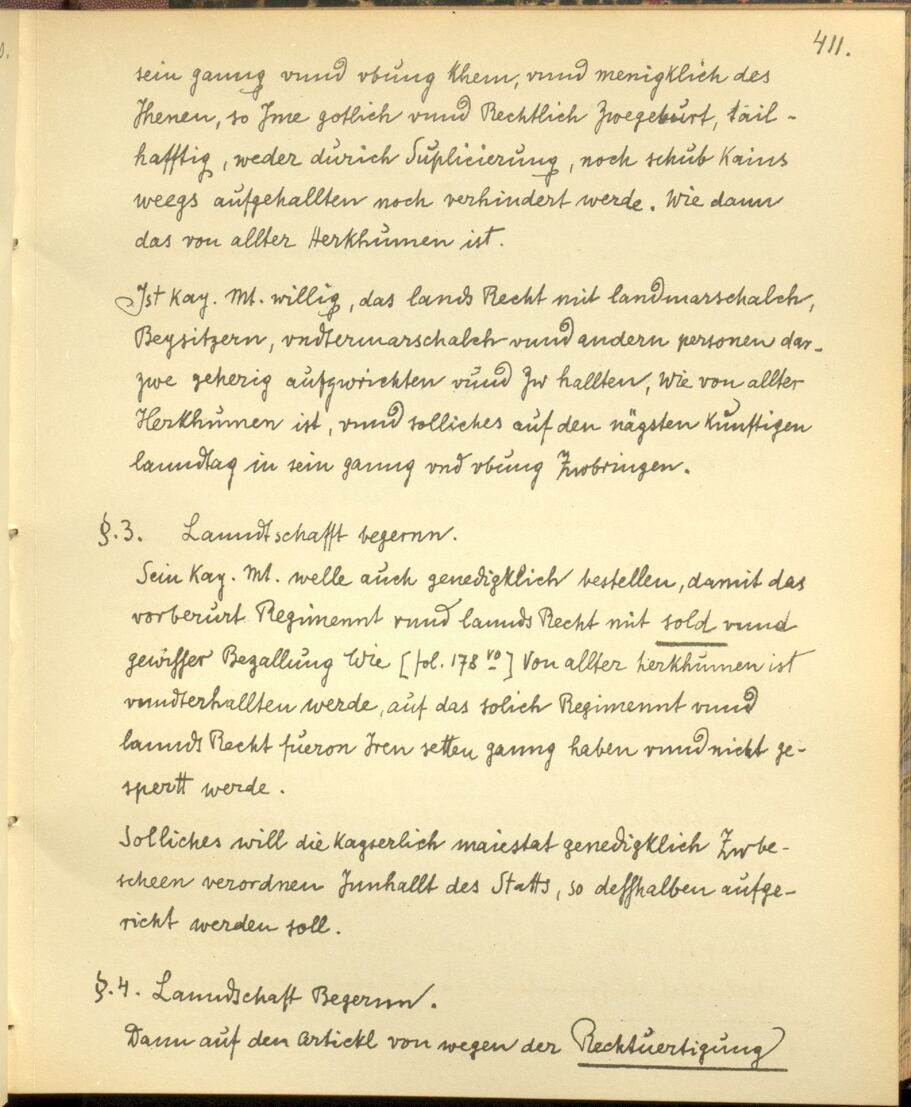 411.
sein ganng vnnd vbung khem, vnnd menigklich des
Jhenen, so Jme gotlich vnnd Rechtlich Zwegeburt, tail-
hafftig, weder durich Suplicierung, noch schub Kains
weegs aufgehallten noch verhindert werde. Wie dann
das von allter Herkhumen ist.
Ist Kay. Mt. willig, das lands Recht mit landmarschalch,
Beysitzern, vndtermarschalch vnnd andern personen dar-
zwe geherig aufzwrichten vnnd Zw hallten, Wie von allter
Herkhumen ist, vnnd solliches auf den nägsten Künftigen
lanndtag in sein ganng vnd vbung Zwbringen.
§.3. Lanndtschafft begernn.
Sein Kay. Mt. welle auch genedigklich bestellen, damit das
vorberurt Regimennt vnnd lannds Recht mit sold vnnd
gewisser Bezallung Wie [fol. 178 vo] Von allter herkhumen ist
vnndterhallten werde, auf das solich Regimennt vnnd
lannds Recht fueron Iren setten ganng haben vnnd nicht ge-
spertt werde.
Solliches will die Kayserlich maiestat genedigklich Zwbe-
scheen verordnen Innhallt des Statts, so desshalben aufge-
richt werden soll.
§.4. Lanndschaft Begernn.
Dann auf den artickl von wegen der Rechtuertigung